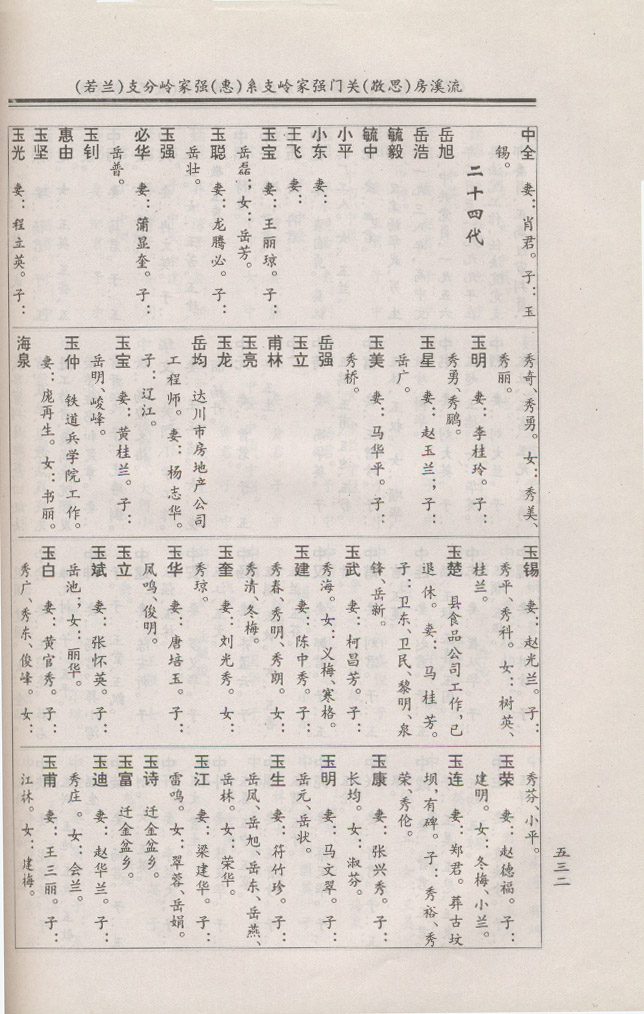 流溪房(思敬)关门强家岭支系(惠)强家岭分支(若兰)
中全 妻：肖君。子：玉
锡。
二十四代
岳旭
岳浩
毓毅
毓中
小平
小东 妻：
王飞 妻：
玉宝 妻：王丽琼。子：
岳磊；女：岳芳。
玉聪 妻：龙腾必。子：
岳壮。
玉强
必华 妻：蒲显奎。子：
岳普。
玉钊
惠由
玉坚
玉光 妻：程立英。子：
秀奇、秀勇。女：秀美、
秀丽。
玉明 妻：李桂玲。子：
秀勇、秀鹏。
玉星 妻：赵玉兰；子：
岳广。
玉美 妻：马华平。子：
秀桥。
岳强
玉立
甫林
玉亮
玉龙
岳均 达川市房地产公司
工程师。妻：杨志华。
子：辽江。
玉宝 妻：黄桂兰。子：
岳明、峻峰。
玉仲 铁道兵学院工作。
妻：庞再生。女：书丽。
海泉
玉锡 妻：赵光兰。子：
秀平、秀科。女：树英、
桂兰。
玉楚 县食品公司工作，已
退休。妻：马桂芳。
子：卫东、卫民、黎明、泉
锋、岳新。
玉武 妻：柯昌芳。子：
秀海。女：义梅、寒格。
玉建 妻：陈中秀。子：
秀春、秀明、秀朗。女：
秀清、冬梅。
玉奎 妻：刘光秀。女：
秀琼。
玉华 妻：唐培玉。子：
凤鸣、俊明。
玉立
玉斌 妻：张怀英。子：
岳池；女：丽华。
玉白 妻：黄官秀。子：
秀广、秀东、俊峰。女：
秀芬、小平。
玉荣 妻：赵德福。子：
建明。女：冬梅、小兰。
玉连 妻：郑君。葬古坟
坝，有碑。子：秀裕、秀
荣、秀伦。
玉康 妻：张兴秀。子：
长均。女：淑芬。
玉明 妻：马文翠。子：
岳元、岳状。
玉生 妻：符竹珍。子：
岳凤、岳旭、岳东、岳燕、
岳林。女：荣华。
玉江 妻：梁建华。子：
雷鸣。女：翠蓉、岳娟。
玉诗 迁金盆乡。
玉富 迁金盆乡。
玉迪 妻：赵华兰。子：
秀庄。女：会兰。
玉甫 妻：王三丽。子：
江袜。女：建梅。
五三二